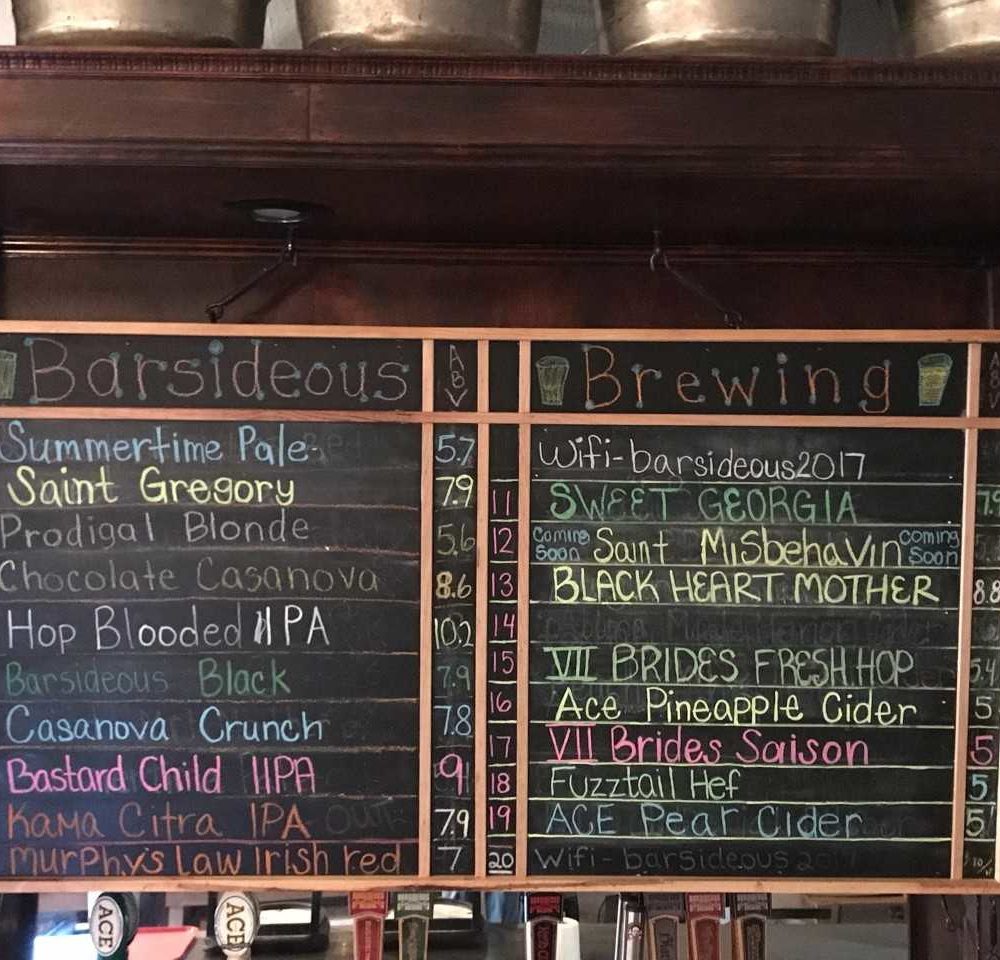 Barsideous ABV
Summertime Pale 5.7
Saint Gregory 7.9
Prodigal Blonde 5.6
Chocolate Casanova 8.6
Hop Blooded IPA 10.2
Barsideous Black 7.9
Casanova Crunch 7.8
Bastard Child IIPA 9
Kama Citra IPA 7.9
Murphy's Law Irish red 7
Brewing
Wifi-barsideous2017
11 SWEET GEORGIA
12 Coming Soon Saint Misbehavin coming Soon
13 BLACK HEART MOTHER 8.8
14
15 VII BRIDES FRESH HOP 5.4
16 Ace Pineapple Cider 5
17 VII Brides Saison 5
18 Fuzztail Hef 5
19 ACE Pear Cider 5
20 Wifi-barsideous
ACE
ACE